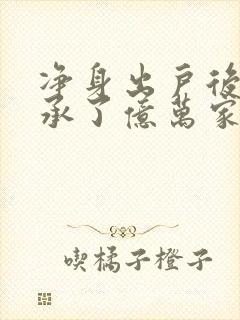 净身出戶後
承了億萬家
喫橘子橙子